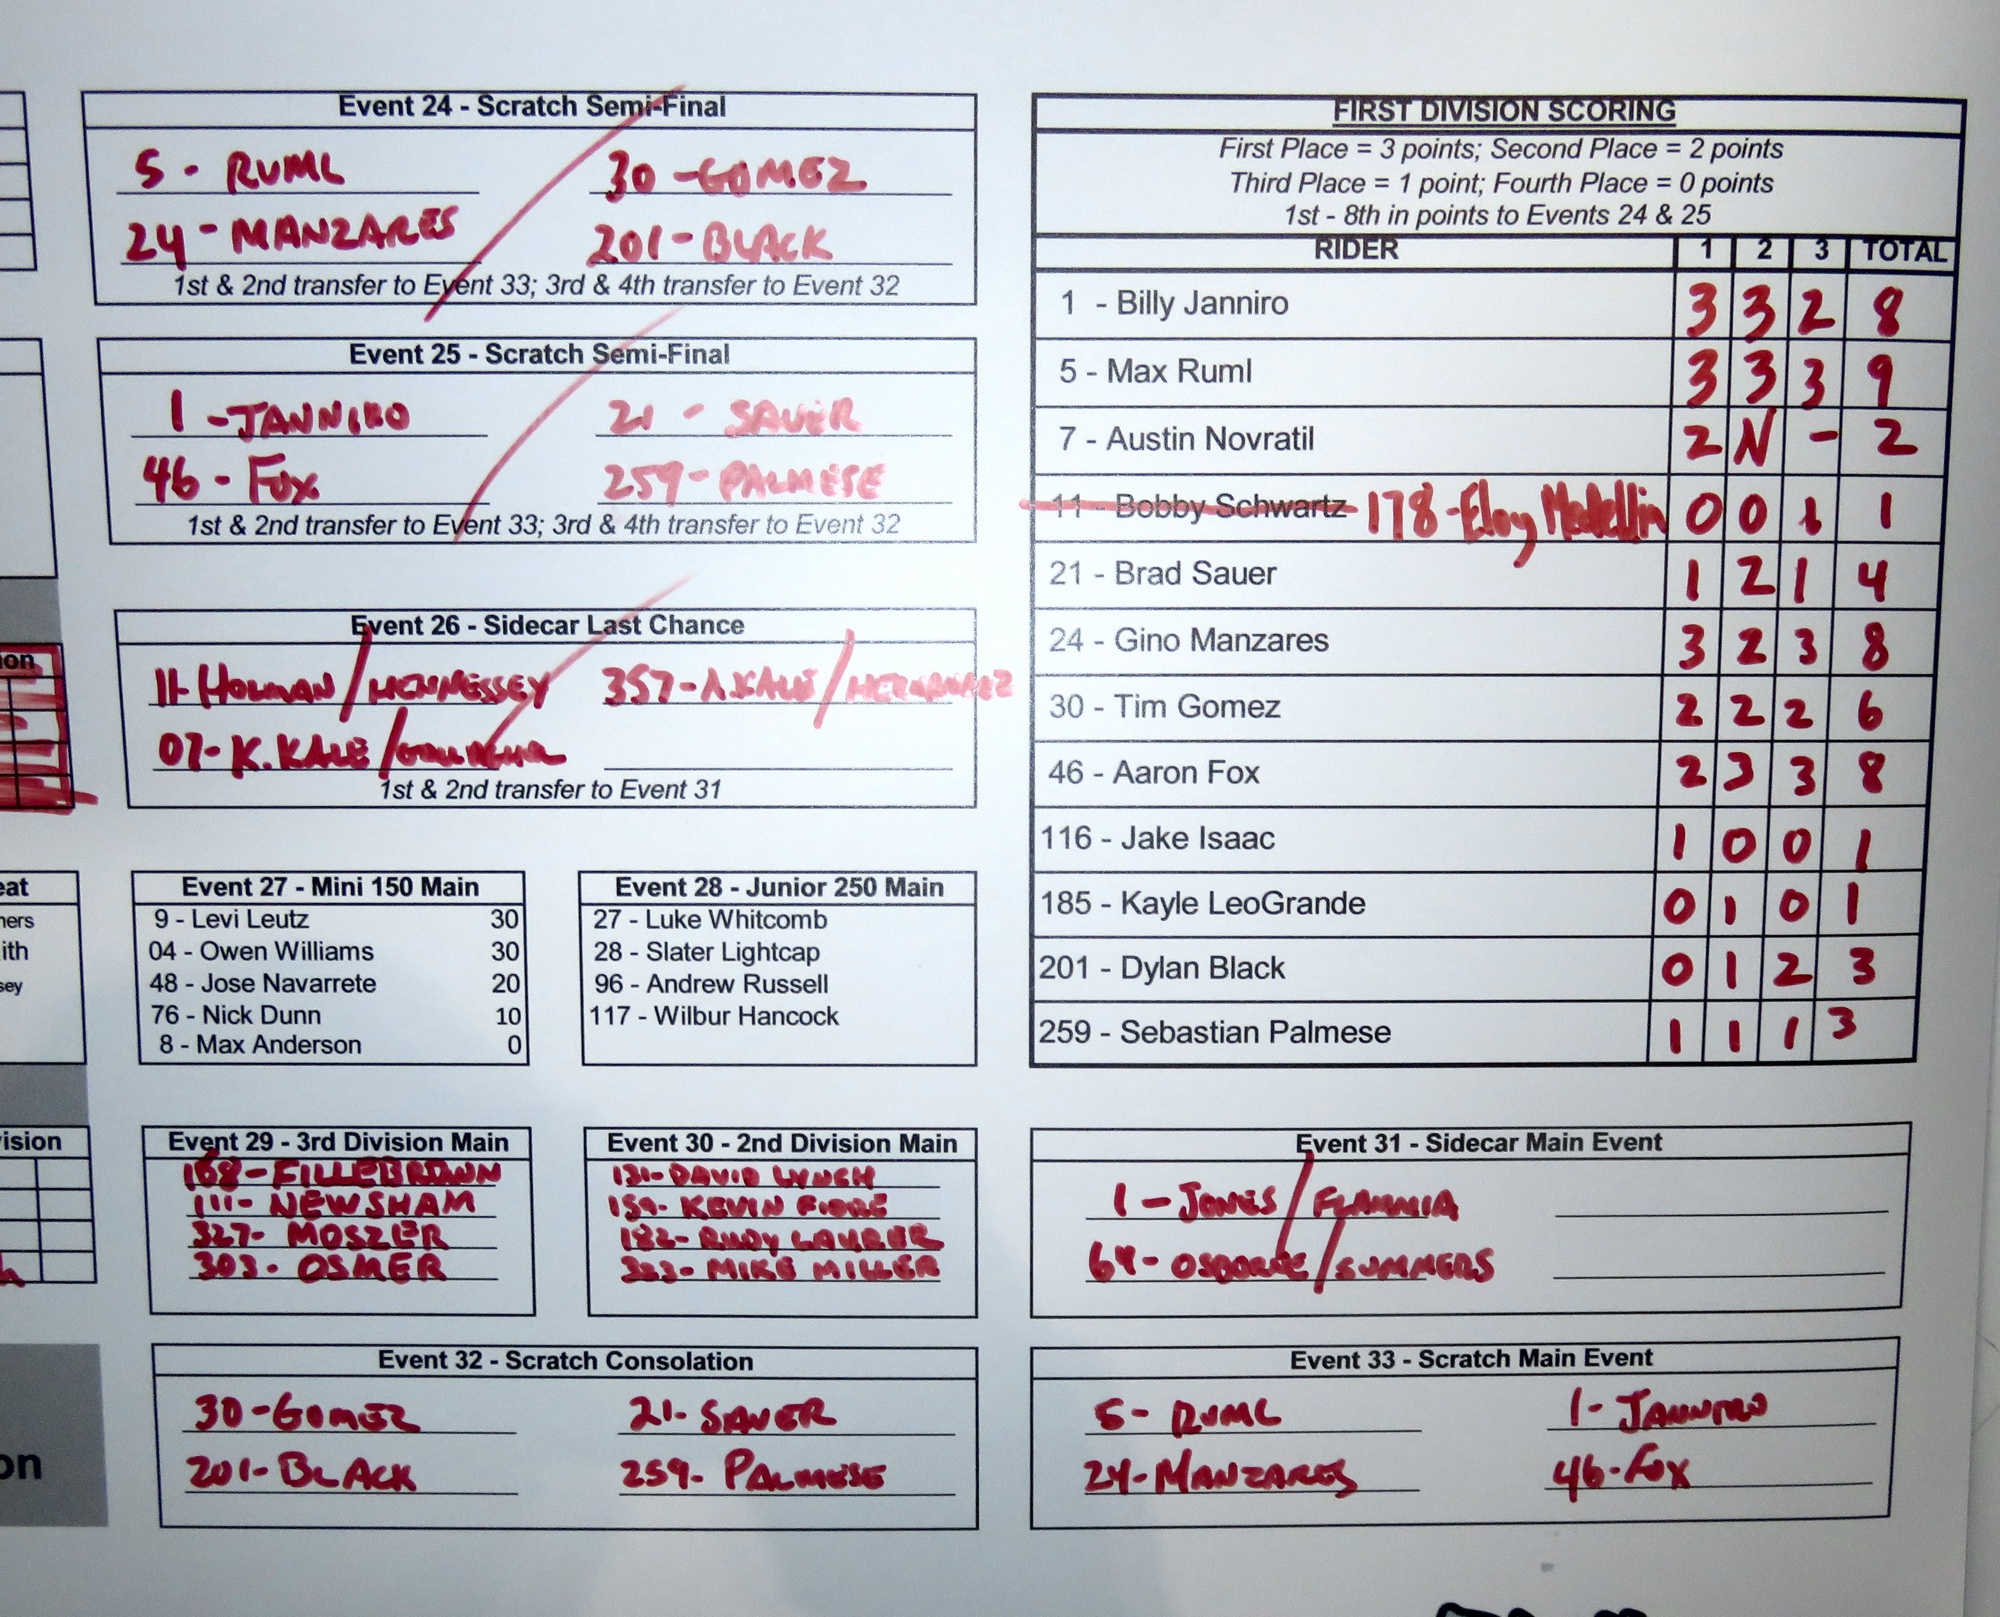 Event 24 - Scratch Semi-Final
5 - RUML 30 - GOMEZ
24 - MANZARES 201 - BLACK
1st & 2nd transfer to Event 33; 3rd & 4th transfer to Event 32
Event 25 - Scratch Semi-Final
1 - JANNIRO 21 - SAUER
46 - FOX 259 - PALMESE
1st & 2nd transfer to Event 33; 3rd & 4th transfer to Event 32
Event 26 - Sidecar Last Chance
11 - HOLMAN / HENNESSEY 357 - A.KALE / HERNANDEZ
07 - K.KALE /
1st & 2nd transfer to Event 31
FIRST DIVISION SCORING
First Place = 3 points; Second Place = 2 points
Third Place = 1 point; Fourth Place = 0 points
1st - 8th in points to Events 24 & 25
RIDER 1 2 3 TOTAL
1 - Billy Janniro 3 3 2 8
5 - Max Ruml 3 3 3 9
7 - Austin Novratil 2 N - 2
11 - Bobby Schwartz 178 - Eloy Medellin 0 0 1 1
21 - Brad Sauer 1 2 1 4
24 - Gino Manzares 3 2 3 8
30 - Tim Gomez 2 2 2 6
46 - Aaron Fox 2 3 3 8
116 - Jake Isaac 1 0 0 1
185 - Kayle LeoGrande 0 1 0 1
201 - Dylan Black 0 1 2 3
259 - Sebastian Palmese 1 1 1 3
on
eat
ners
ith
sey
Event 27 - Mini 150 Main
9 - Levi Leutz 30
04 - Owen Williams 30
48 - Jose Navarrete 20
76 - Nick Dunn 10
8 - Max Anderson 0
Event 28 - Junior 250 Main
27 - Luke Whitcomb
28 - Slater Lightcap
96 - Andrew Russell
117 - Wilbur Hancock
ision
Event 29 - 3rd Division Main
168 - FILLEBROWN
111 - NEWSHAM
327 - MOSZER
303 - OSMER
Event 30 - 2nd Division Main
131 - DAVID LYNCH
159 - KEVIN FIORE
182 - RUDY LAURER
323 - MIKE MILLER
Event 31 - Sidecar Main Event
1 - JONES / FLAMMIA
64 - OSBORNE / SUMMERS
on
Event 32 - Scratch Consolation
30 - GOMEZ 21 - SAUER
201 - BLACK 259 - PALMESE
Event 33 - Scratch Main Event
5 - RUML 1 - JANNIRO
24 - MANZARES 46 - FOX